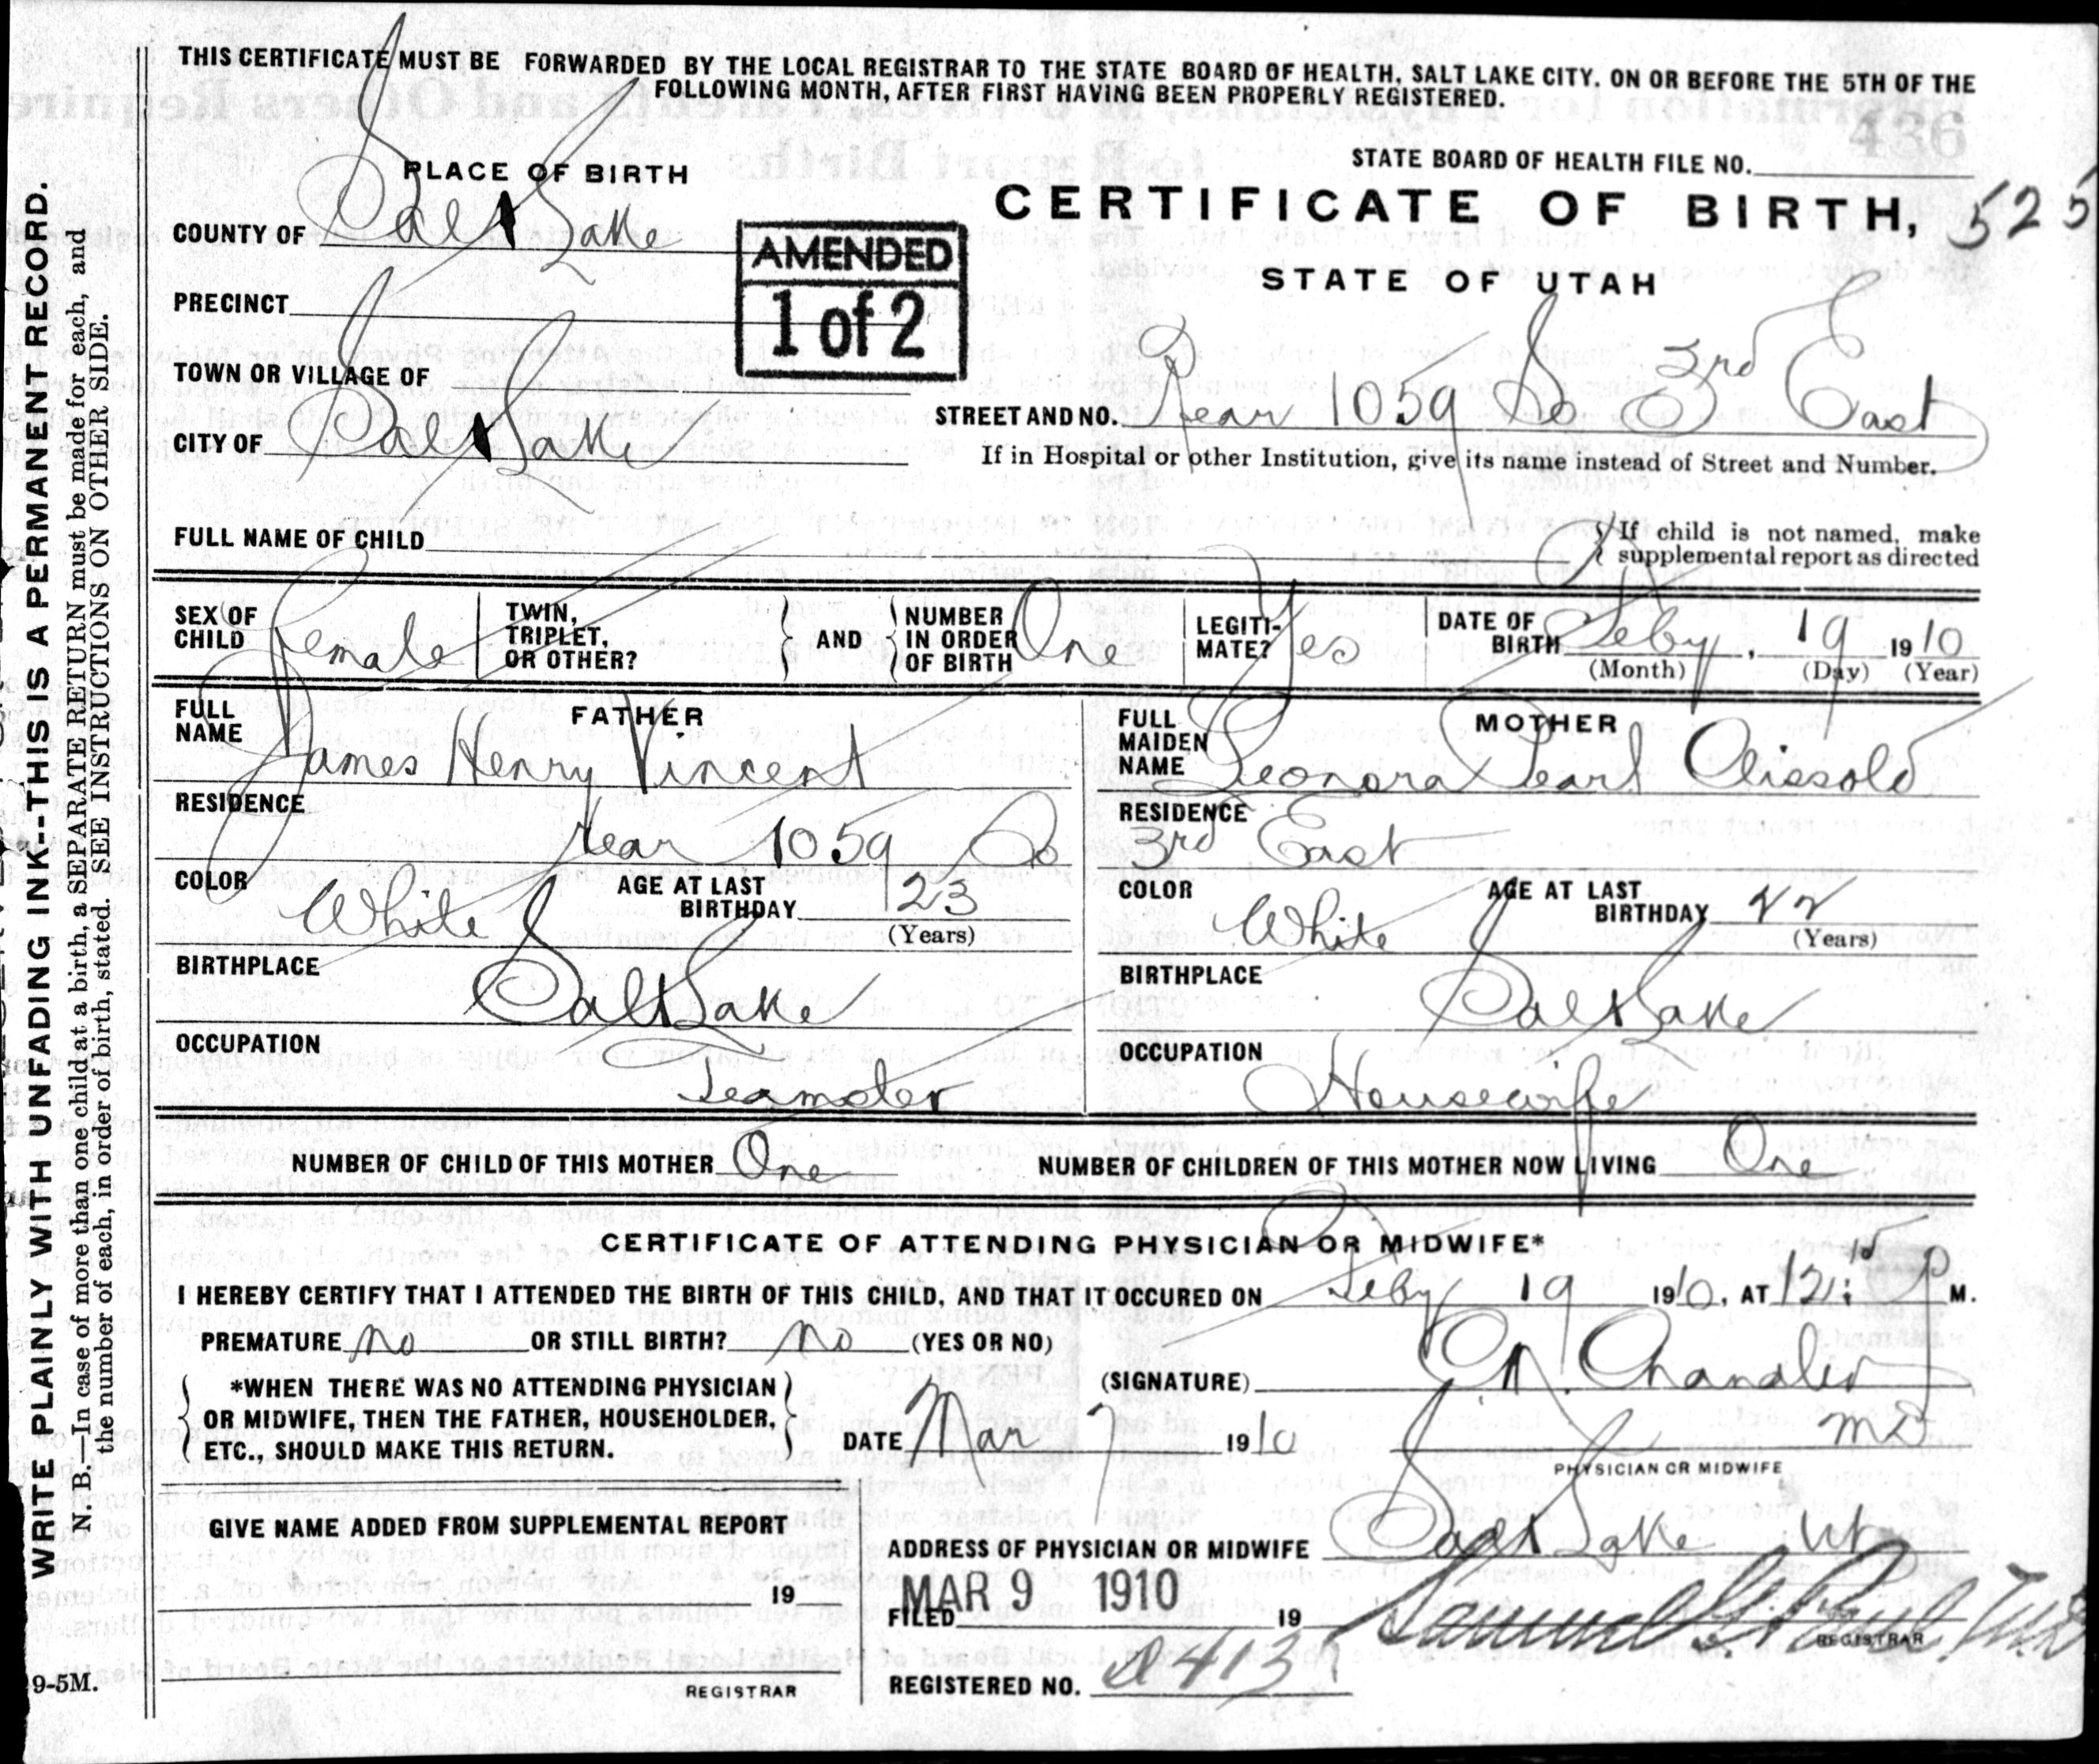 THIS CERTIFICATE MUST BE FORWARDED BY THE LOCAL REGISTRAR TO THE STATE BOARD OF HEALTH, SALT LAKE CITY, ON OR BEFORE THE 5TH OF THE
FOLLOWING MONTH, AFTER FIRST HAVING BEEN PROPERLY REGISTERED.
WRITE PLAINLY WITH UNFADING INK--THIS IS A PERMANENT RECORD.
N. B.—In case of more than one child at a birth, a SEPARATE RETURN must be made for each, and
the number of each, in order of birth, stated. SEE INSTRUCTIONS ON OTHER SIDE.
PLACE OF BIRTH
STATE BOARD OF HEALTH FILE NO.
CERTIFICATE OF BIRTH, 525
STATE OF UTAH
COUNTY OF Salt Lake
AMENDED
1 of 2
PRECINCT
TOWN OR VILLAGE OF
STREET AND NO. Rear 1059 So 3rd East
CITY OF Salt Lake
If in Hospital or other Institution, give its name instead of Street and Number.
FULL NAME OF CHILD
If child is not named, make
supplemental report as directed
SEX OF CHILD Female
TWIN, TRIPLET, OR OTHER?
AND
NUMBER IN ORDER OF BIRTH One
LEGITI-MATE? Yes
DATE OF BIRTH Feby, 19 1910
(Month) (Day) (Year)
FATHER
FULL NAME James Henry Vincent
MOTHER
FULL MAIDEN NAME Leonora Pearl Clissold
RESIDENCE rear 1059 So
RESIDENCE 3rd East
COLOR White
AGE AT LAST BIRTHDAY 23
(Years)
COLOR White
AGE AT LAST BIRTHDAY 22
(Years)
BIRTHPLACE Salt Lake
BIRTHPLACE Salt Lake
OCCUPATION Teamster
OCCUPATION Housewife
NUMBER OF CHILD OF THIS MOTHER One
NUMBER OF CHILDREN OF THIS MOTHER NOW LIVING One
CERTIFICATE OF ATTENDING PHYSICIAN OR MIDWIFE*
I HEREBY CERTIFY THAT I ATTENDED THE BIRTH OF THIS CHILD, AND THAT IT OCCURED ON Feby 19 1910, AT 12:15 P M.
PREMATURE No OR STILL BIRTH? No (YES OR NO)
*WHEN THERE WAS NO ATTENDING PHYSICIAN
OR MIDWIFE, THEN THE FATHER, HOUSEHOLDER,
ETC., SHOULD MAKE THIS RETURN.
(SIGNATURE) Chandler
DATE Mar 7 1910
MD
PHYSICIAN OR MIDWIFE
GIVE NAME ADDED FROM SUPPLEMENTAL REPORT
19
REGISTRAR
ADDRESS OF PHYSICIAN OR MIDWIFE Salt Lake Ut
MAR 9 1910
FILED 19
Samuel G. Paul, M.D.
REGISTRAR
REGISTERED NO. A413
9-5M.